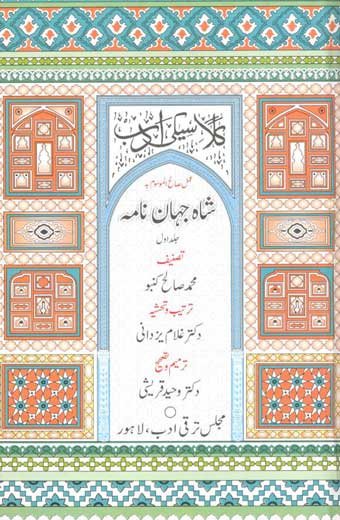 کلاسیکی ادب
عمل صالح الموسوم بہ
شاہ جہان نامہ
جلد اول
تصنیف
محمد صالح کنبو
ترتیب و تحشیہ
دکتر غلام یزدانی
ترمیم و تصحیح
دکتر وحید قریشی
مجلس ترقی ادب، لاہور